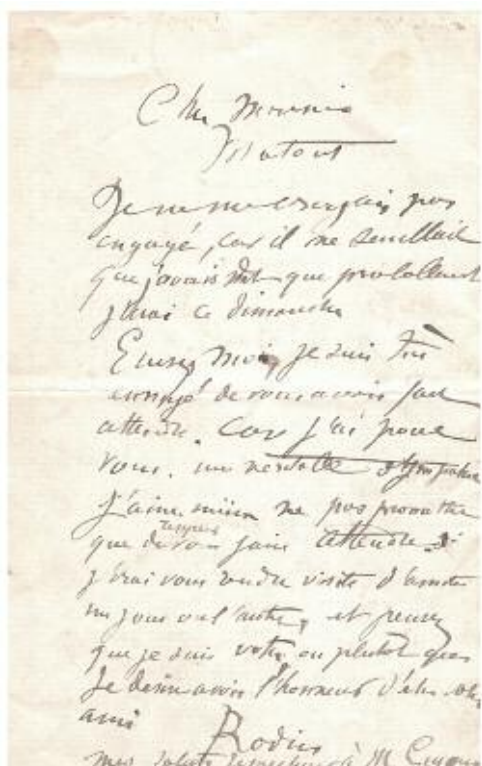 Cher Monsieur
Matout
Je ne me croyais pas
engagé, car il me semblait
que j'avais dit que probablement
j'irai ce dimanche
Excusez moi, je suis très
ennuyé de vous avoir fait
attendre. Car j'ai pour
vous une véritable sympathie
J'aime mieux ne pas promettre
que de vous faire attendre
j'irai vous rendre visite d'amitié
un jour ou l'autre, et pensez
que je suis votre ou plutôt que
je désire avoir l'honneur d'être votre
ami
Rodin
mes saluts à M